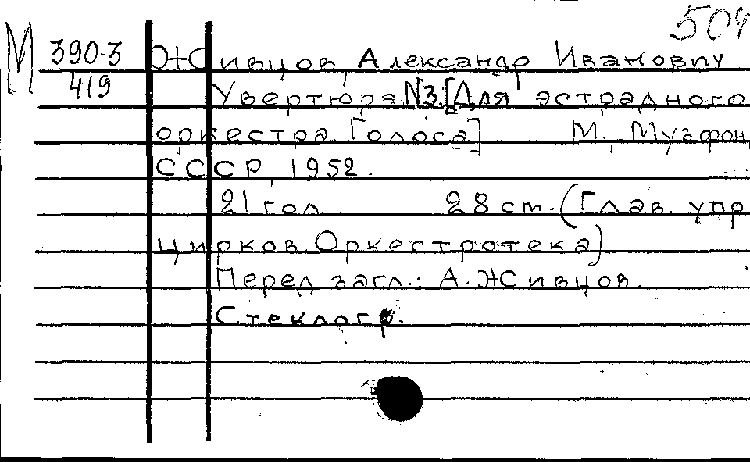 504
М 390-3 Живцов, Александр Иванович
419 Увертюра №3. [Для эстрадного
оркестра. Голоса] М., Музфонд
СССР, 1952.
21 гол. 28 cm. (Глав. упр.
цирков. Оркестротека)
Перед загл.: А. Живцов.
Стеклогр.